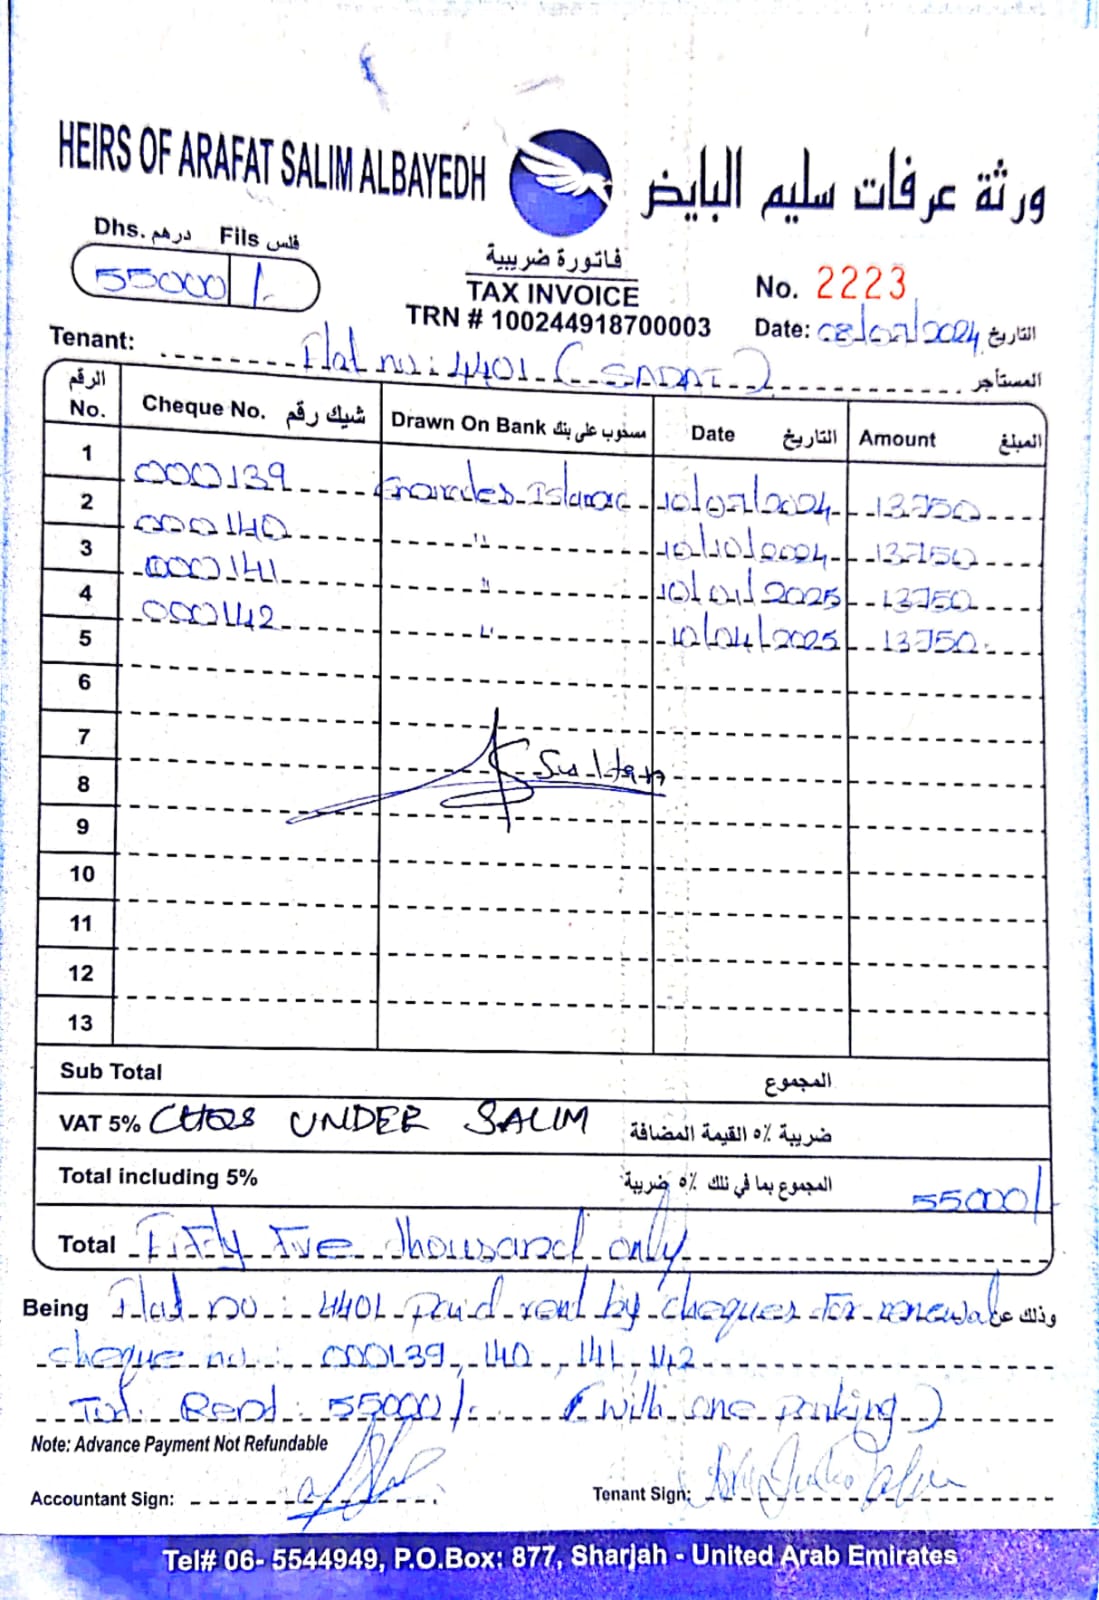 HEIRS OF ARAFAT SALIM ALBAYEDH
ورثة عرفات سليم البايض
Dhs. درهم Fils فلس
55000 /-
فاتورة ضريبية
TAX INVOICE
TRN # 100244918700003
No. 2223
Date: 08/07/2024 التاريخ
Tenant: Flat no: 4401 (SADAT) المستأجر
الرقم No. Cheque No. شيك رقم Drawn On Bank مسحوب على بنك Date التاريخ Amount المبلغ
1 000139 Emirates Islamic 10/07/2024 13750
2 000140 " 10/10/2024 13750
3 000141 " 10/01/2025 13750
4 000142 " 10/04/2025 13750
5
6
7
8 Sultan
9
10
11
12
13
Sub Total المجموع
VAT 5% CHQS UNDER SALIM ضريبة ٥% القيمة المضافة
Total including 5% المجموع بما في ذلك ٥% ضريبة 55000/-
Total Fifty Five thousand only
Being Flat no: 4401 paid rent by cheques for renewal وذلك عن
cheque no: 000139, 140, 141, 142
Tot. Rent: 55000/- (with one parking)
Note: Advance Payment Not Refundable
Accountant Sign:
Tenant Sign:
Tel# 06- 5544949, P.O.Box: 877, Sharjah - United Arab Emirates